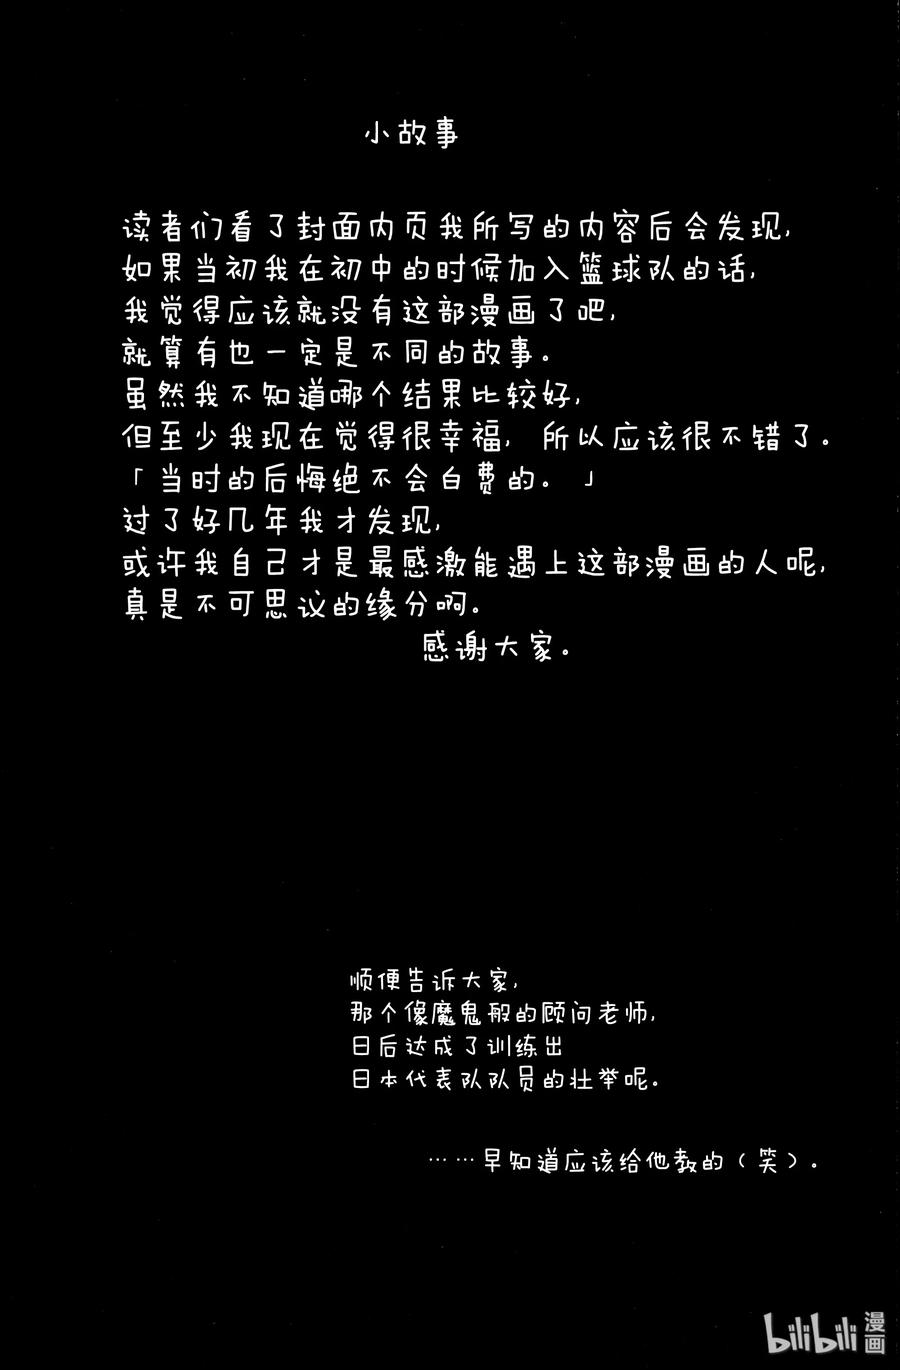 小故事
读者们看了封面内页我所写的内容后会发现,
如果当初我在初中的时候加入篮球队的话,
我觉得应该就没有这部漫画了吧,
就算有也一定是不同的故事。
虽然我不知道哪个结果比较好,
但至少我现在觉得很幸福, 所以应该很不错了。
「当时的后悔绝不会白费的。」
过了好几年我才发现,
或许我自己才是最感激能遇上这部漫画的人呢,
真是不可思议的缘分啊。
感谢大家。
顺便告诉大家,
那个像魔鬼般的顾问老师,
日后达成了训练出
日本代表队队员的壮举呢。
……早知道应该给他教的（笑）。
bilibili漫画